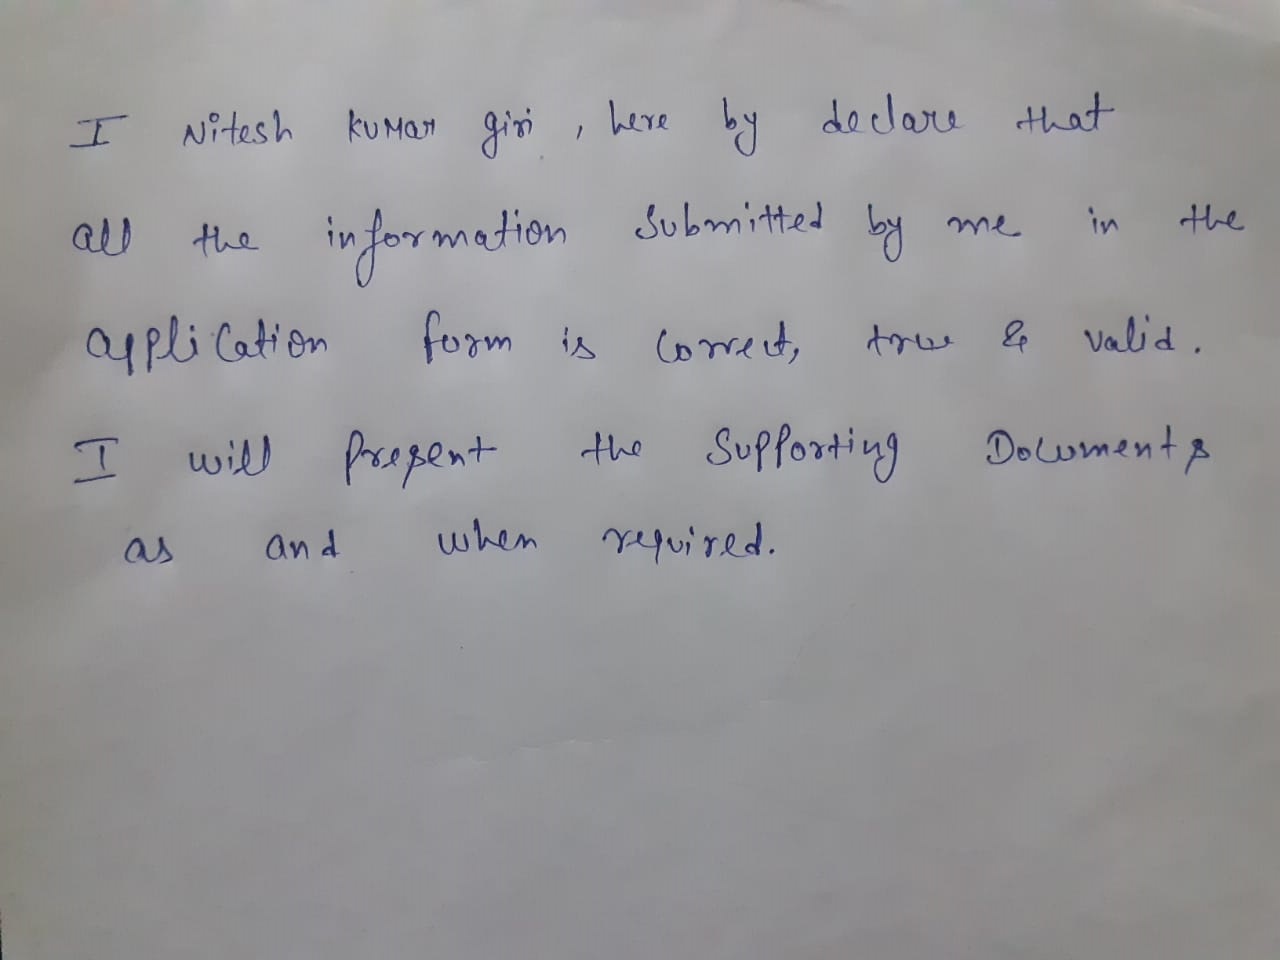 I Nitesh KUMAR giri, here by declare that
all the information Submitted by me in the
application form is correct, true & valid.
I will present the Supporting Documents
as and when required.